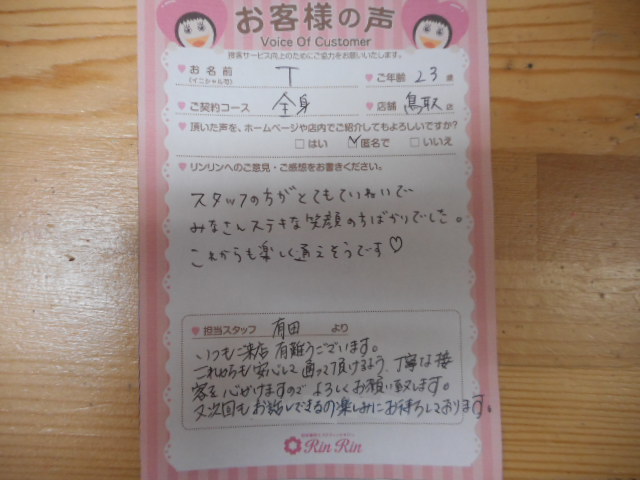 お客様の声
Voice Of Customer
接客サービス向上のためにご協力をお願いいたします。
お名前 (イニシャル可) T ご年齢 23 歳
ご契約コース 全身 店舗 鳥取 店
頂いた声を、ホームページや店内でご紹介してもよろしいですか?
□はい ☑匿名で □いいえ
リンリンへのご意見・ご感想をお書きください。
スタッフの方がとてもていねいで
みなさんステキな笑顔の方ばかりでした。
これからも楽しく通えそうです♡
担当スタッフ 有田 より
いつもご来店有難うございます。
これからも安心して通って頂けるよう、丁寧な接
客を心がけますので よろしくお願い致します。
又次回もお話しできるの楽しみにお待ちしております。
Rin Rin